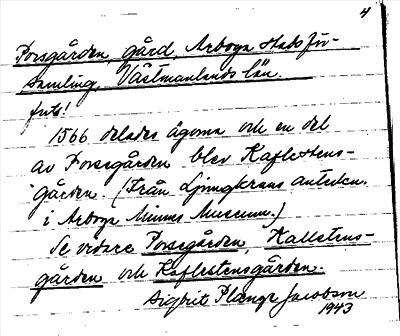 4
Porsgården, gård, Arboga stadsför-
samling, Västmanlands län.
forts!
1566 delades ägorna och en del
av Porsegården blev Kaflestens-
gården. (Från Ljungkrans anteckn.
i Arboga Minnes Museum.)
Se vidare Porsegården, Kallstens-
gården och Kaflestensgården.
Sigbrit Plænge Jacobson
1943